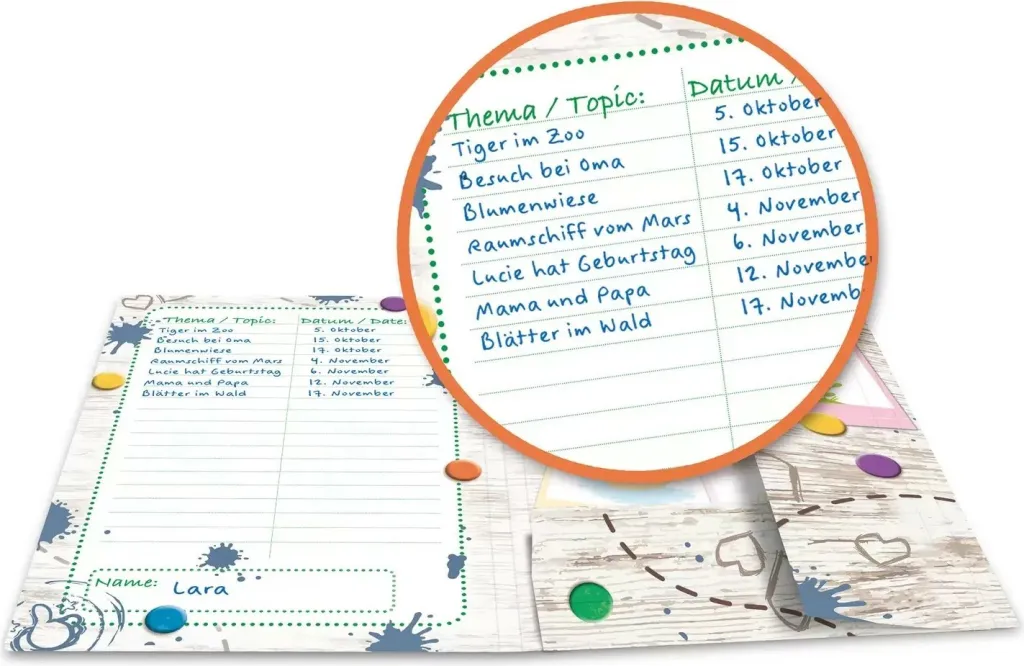 Thema / Topic: Datum /
Tiger im Zoo 5. Oktober
Besuch bei Oma 15. Oktober
Blumenwiese 17. Oktober
Raumschiff vom Mars 4. November
Lucie hat Geburtstag 6. November
Mama und Papa 12. November
Blätter im Wald 17. Novemb
Thema / Topic: Datum / Date:
Tiger im Zoo 5. Oktober
Besuch bei Oma 15. Oktober
Blumenwiese 17. Oktober
Raumschiff vom Mars 4. November
Lucie hat Geburtstag 6. November
Mama und Papa 12. November
Blätter im Wald 17. November
Name: Lara